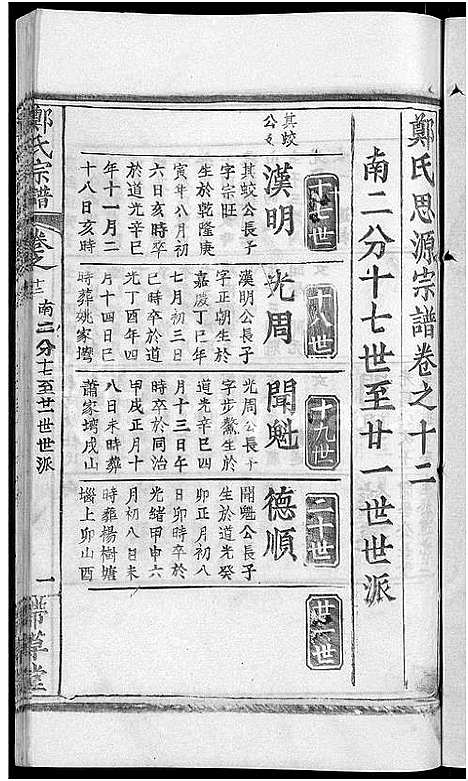 鄭氏思源宗譜卷之十二
南二分十七世至廿一世世派
十七世
其蛟公支
漢明
其蛟公長子
字宗旺
生於乾隆庚
寅年八月初
六日亥時卒
於道光辛巳
年十一月二
十八日亥時
十八世
光周
漢明公長子
字正朝生於
嘉慶丁巳年
七月初三日
巳時卒於道
光丁酉年四
月十四日戌
時葬姚家塆
十九世
聞魁
光周公長子
字步鰲生於
道光辛巳四
月十三日午
時卒於同治
甲戌正月十
八日未時葬
蕭家塆戌山
二十世
德順
聞魁公長子
生於道光癸
卯正月初八
日卯時卒於
光緒甲申六
月初八日未
時葬楊樹塘
堖上卯山酉
廿一世
鄭氏宗譜
卷之十二
南二分十七至廿一世世派
一
帶草堂